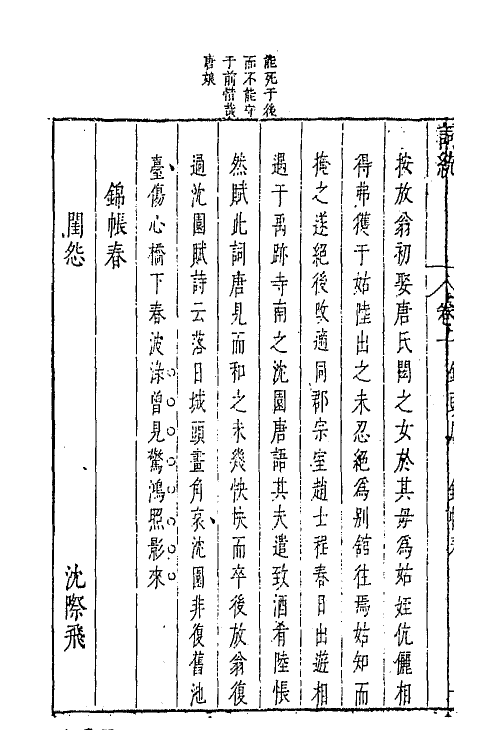 詞統
卷十
能死于後
而不能守
于前惜哉
唐娘
按放翁初娶唐氏閎之女於其毋為姑姪伉儷相
得弗獲于姑陸出之未忍絕為別舘往焉姑知而
掩之遂絕後改適同郡宗室趙士程春日出遊相
遇于禹跡寺南之沈園唐語其夫遣致酒肴陸悵
然賦此詞唐見而和之未幾怏怏而卒後放翁復
過沈園賦詩云落日城頭畫角哀沈園非復舊池
臺傷心橋下春波渌曾見驚鴻照影來
錦帳春
閨怨 沈際飛